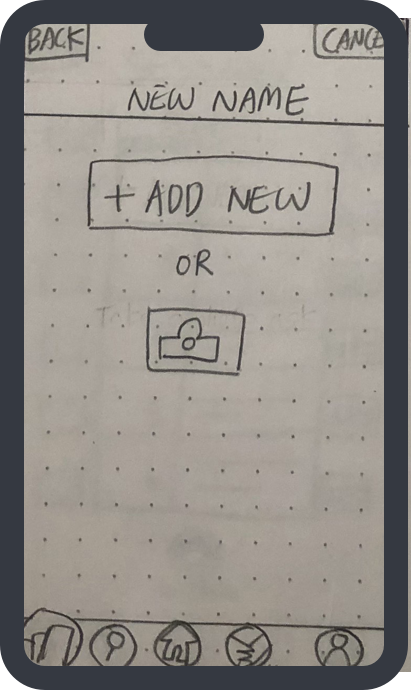 BACK
NEW NAME
+ ADD NEW
OR